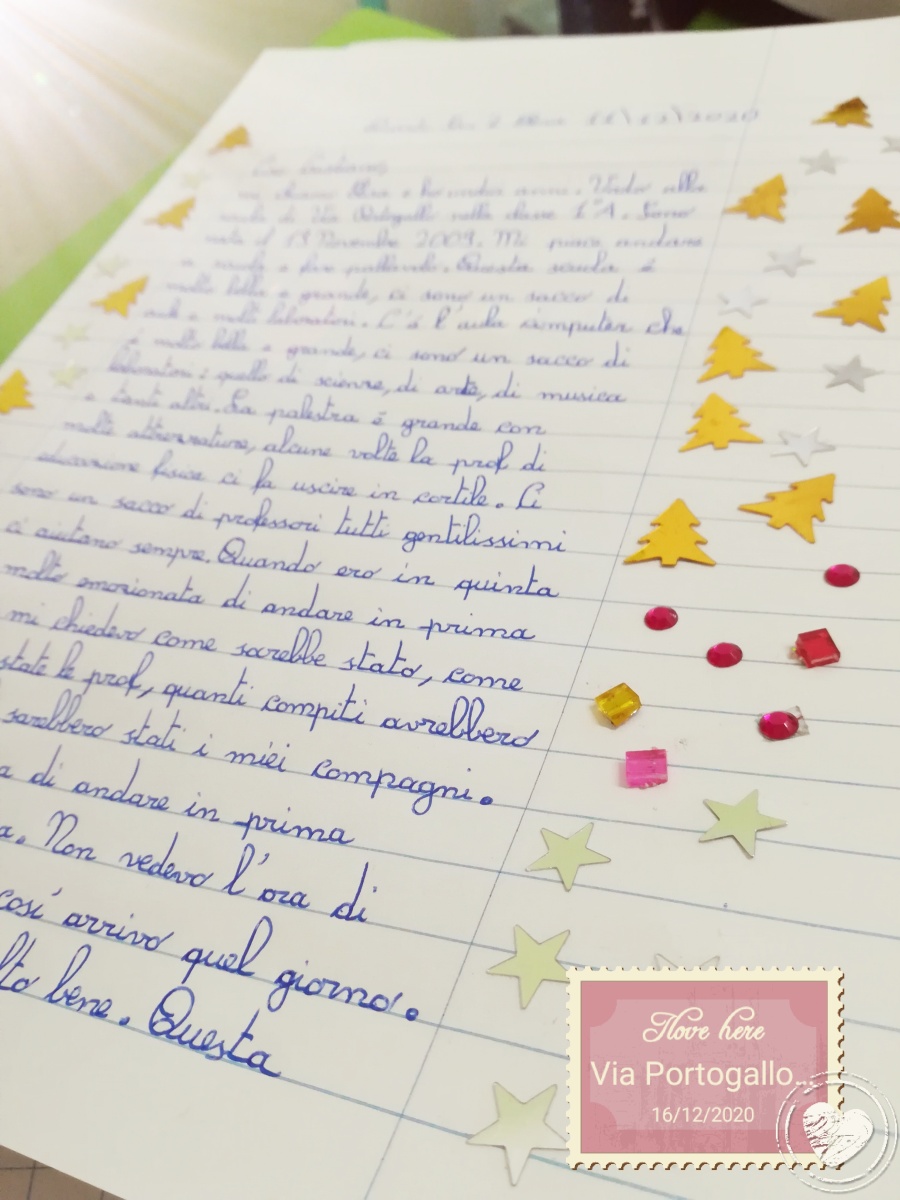 11/12/2020
Caro Cristiano,
mi chiamo e ho undici anni. Vado alla
scuola di Via Portogallo nella classe 1°A. Sono
nata il 13 Novembre 2009. Mi piace andare
a scuola e fare pallavolo. Questa scuola è
molto bella e grande, ci sono un sacco di
aule e molti laboratori. C'è l'aula computer che
è molto bella e grande, ci sono un sacco di
laboratori: quello di scienze, di arte, di musica
e tanti altri. La palestra è grande con
molte attrezzature, alcune volte la prof di
educazione fisica ci fa uscire in cortile. Ci
sono un sacco di professori tutti gentilissimi
ci aiutano sempre. Quando ero in quinta
molto emozionata di andare in prima
mi chiedevo come sarebbe stato, come
state le prof, quanti compiti avrebbero
sarebbero stati i miei compagni.
a di andare in prima
a. Non vedevo l'ora di
così arrivo quel giorno.
lto bene. Questa
I love here
Via Portogallo...
16/12/2020